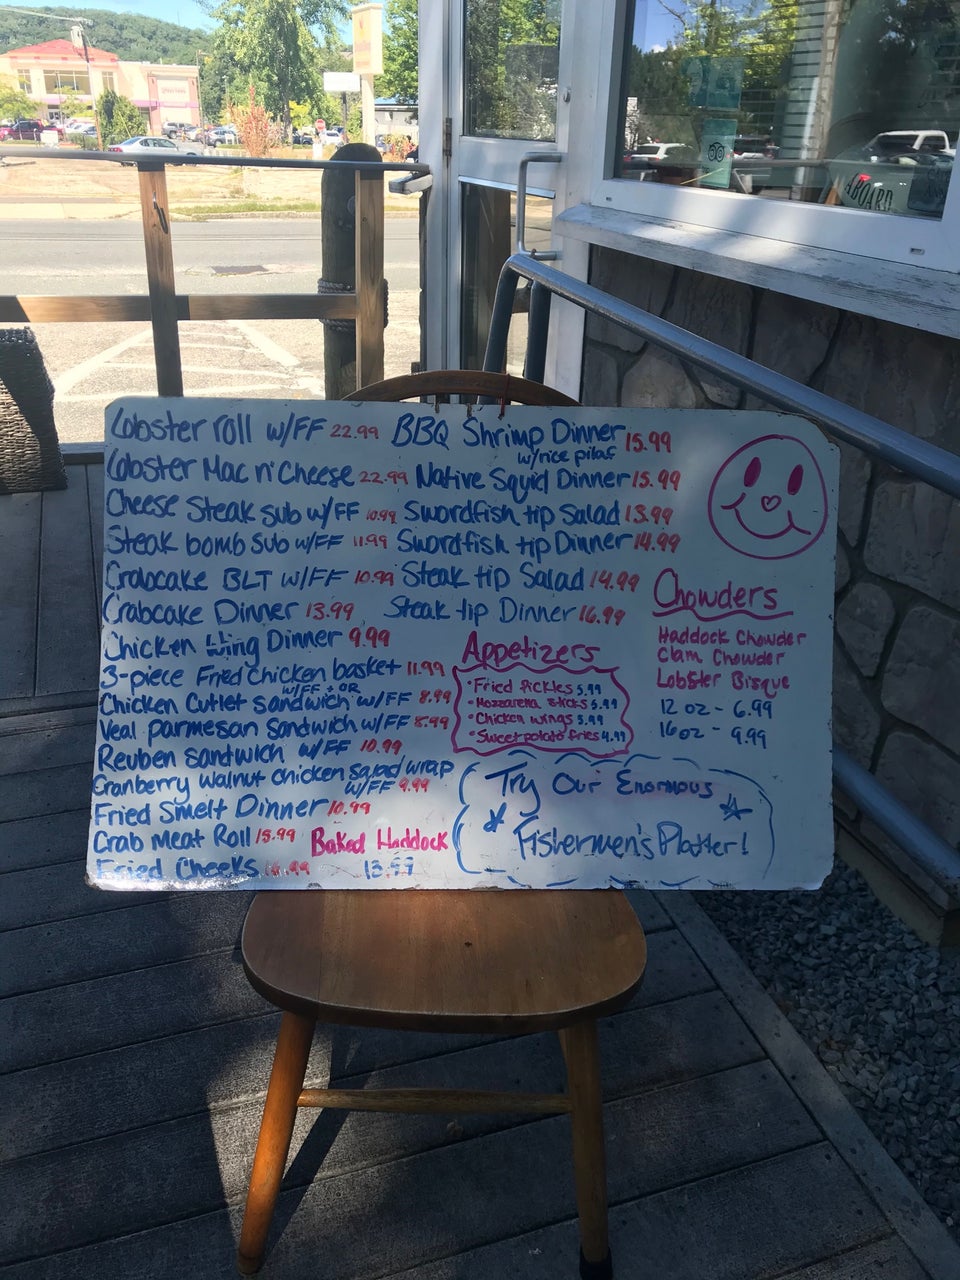 Lobster roll w/FF 22.99
Lobster Mac n' Cheese 22.99
Cheese Steak sub w/FF 10.99
Steak bomb sub w/FF 11.99
Crabcake BLT w/FF 10.99
Crabcake Dinner 13.99
Chicken Wing Dinner 9.99
3-piece Fried chicken basket 11.99
w/FF + OR
Chicken Cutlet sandwich w/FF 8.99
Veal parmesan Sandwich w/FF 8.99
Reuben sandwich w/FF 10.99
Cranberry walnut chicken salad wrap
w/FF 9.99
Fried Smelt Dinner 10.99
Crab Meat Roll 15.99
Fried Cheeks
Baked Haddock
13.99
BBQ Shrimp Dinner 15.99
w/rice pilaf
Native Squid Dinner 15.99
Swordfish tip Salad 13.99
Swordfish tip Dinner 14.99
Steak tip Salad 14.99
Steak tip Dinner 16.99
Appetizers
• Fried Pickles 5.99
• Mozzarella sticks 5.99
• Chicken wings 5.99
• Sweet potato fries 4.99
Chowders
Haddock Chowder
Clam Chowder
Lobster Bisque
12 oz - 6.99
16 oz - 9.99
Try Our Enormous
Fishermen's Platter!
ABOARD